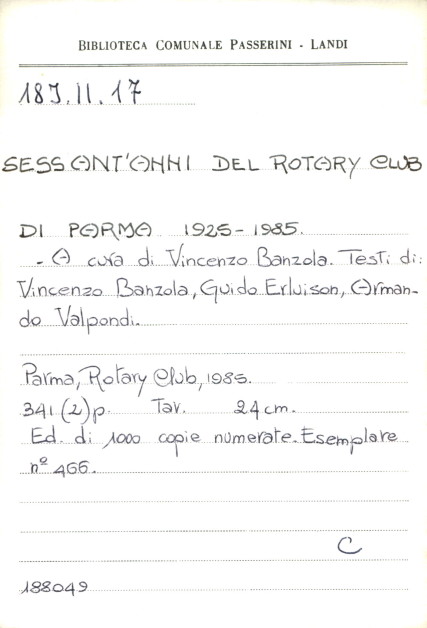 BIBLIOTECA COMUNALE PASSERINI - LANDI
18J.II.17
SESSANT'ANNI DEL ROTARY CLUB
DI PARMA 1925-1985.
- A cura di Vincenzo Banzola. Testi di:
Vincenzo Banzola, Guido Erluison, Arman-
do Valpondi.
Parma, Rotary Club, 1985.
341 (2) p. Tav. 24 cm.
Ed. di 1000 copie numerate. Esemplare
nº 466.
C
188049